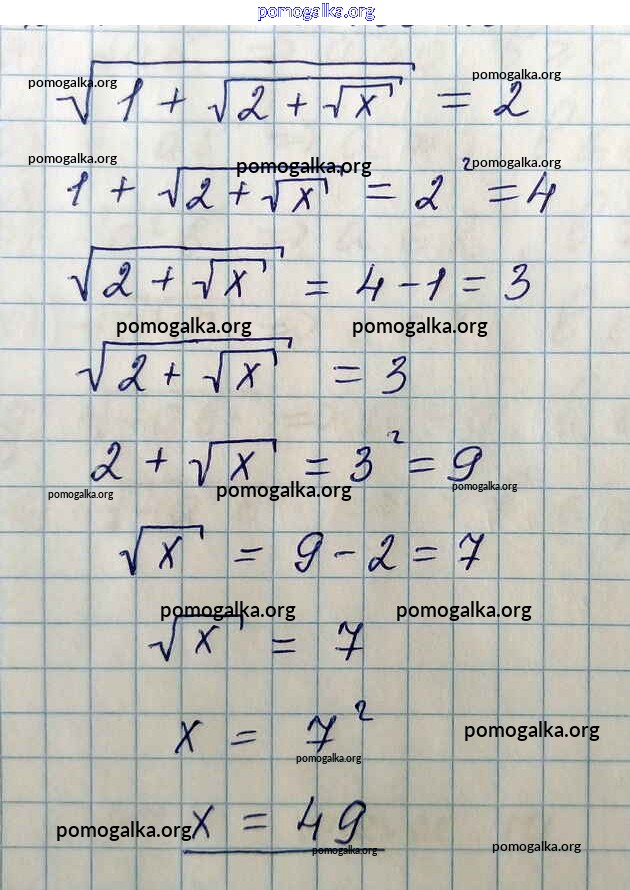 pomogalka.org
pomogalka.org pomogalka.org
√(1 + √(2 + √x)) = 2
pomogalka.org pomogalka.org pomogalka.org
1 + √(2 + √x) = 2² = 4
√(2 + √x) = 4 - 1 = 3
pomogalka.org pomogalka.org
√(2 + √x) = 3
2 + √x = 3² = 9
pomogalka.org pomogalka.org pomogalka.org
√x = 9 - 2 = 7
pomogalka.org pomogalka.org
√x = 7
x = 7²
pomogalka.org
pomogalka.org
x = 49
pomogalka.org
pomogalka.org pomogalka.org